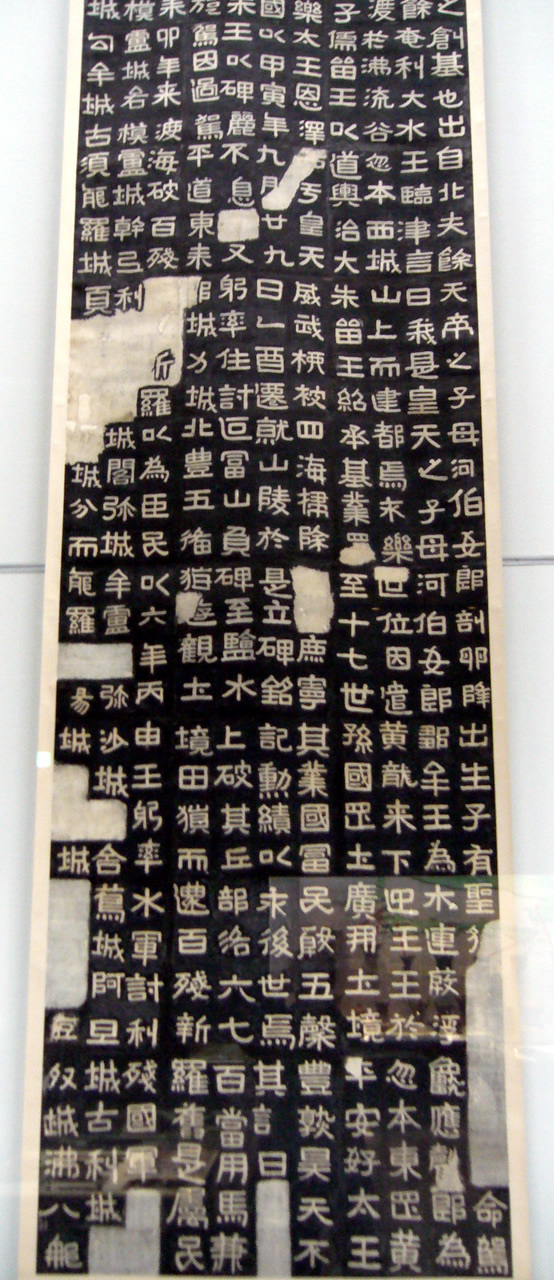 之創基也出自北夫餘天帝之子母河伯女郎剖卵降出生子有聖命駕
餘奄利大水王臨津言曰我是皇天之子母河伯女郎鄒牟王為木連葭浮龜應聲即為
渡於沸流谷忽本西城山上而建都焉永樂世位因遣黃龍來下迎王王於忽本東罡黃
子儒留王以道輿治大朱留王紹承基業至十七世孫國罡上廣開土境平安好太王
樂太王恩澤于皇天威武枊被四海掃除庶寧其業國富民殷五穀豐熟昊天不
國以甲寅年九月廿九日乙酉遷就山陵於是立碑銘記勳績以永後世焉其言曰
未王以碑麗不息又躬率住討叵富山負碑至鹽水上破其丘部洛六七百當用馬兼
於駕因過駕平道東来城力城北豐五備猶遊觀土境田獵而還百殘新羅舊是屬民
来卯年来渡海破百殘斤羅以為臣民以六年丙申王躬率水軍討利殘國軍
模盧城各模盧城幹弖利城閣弥城牟盧弥沙城舍蔦城阿旦城古利城
城勾牟城古須耶羅城頁城分而耶羅易城城奴城沸八那